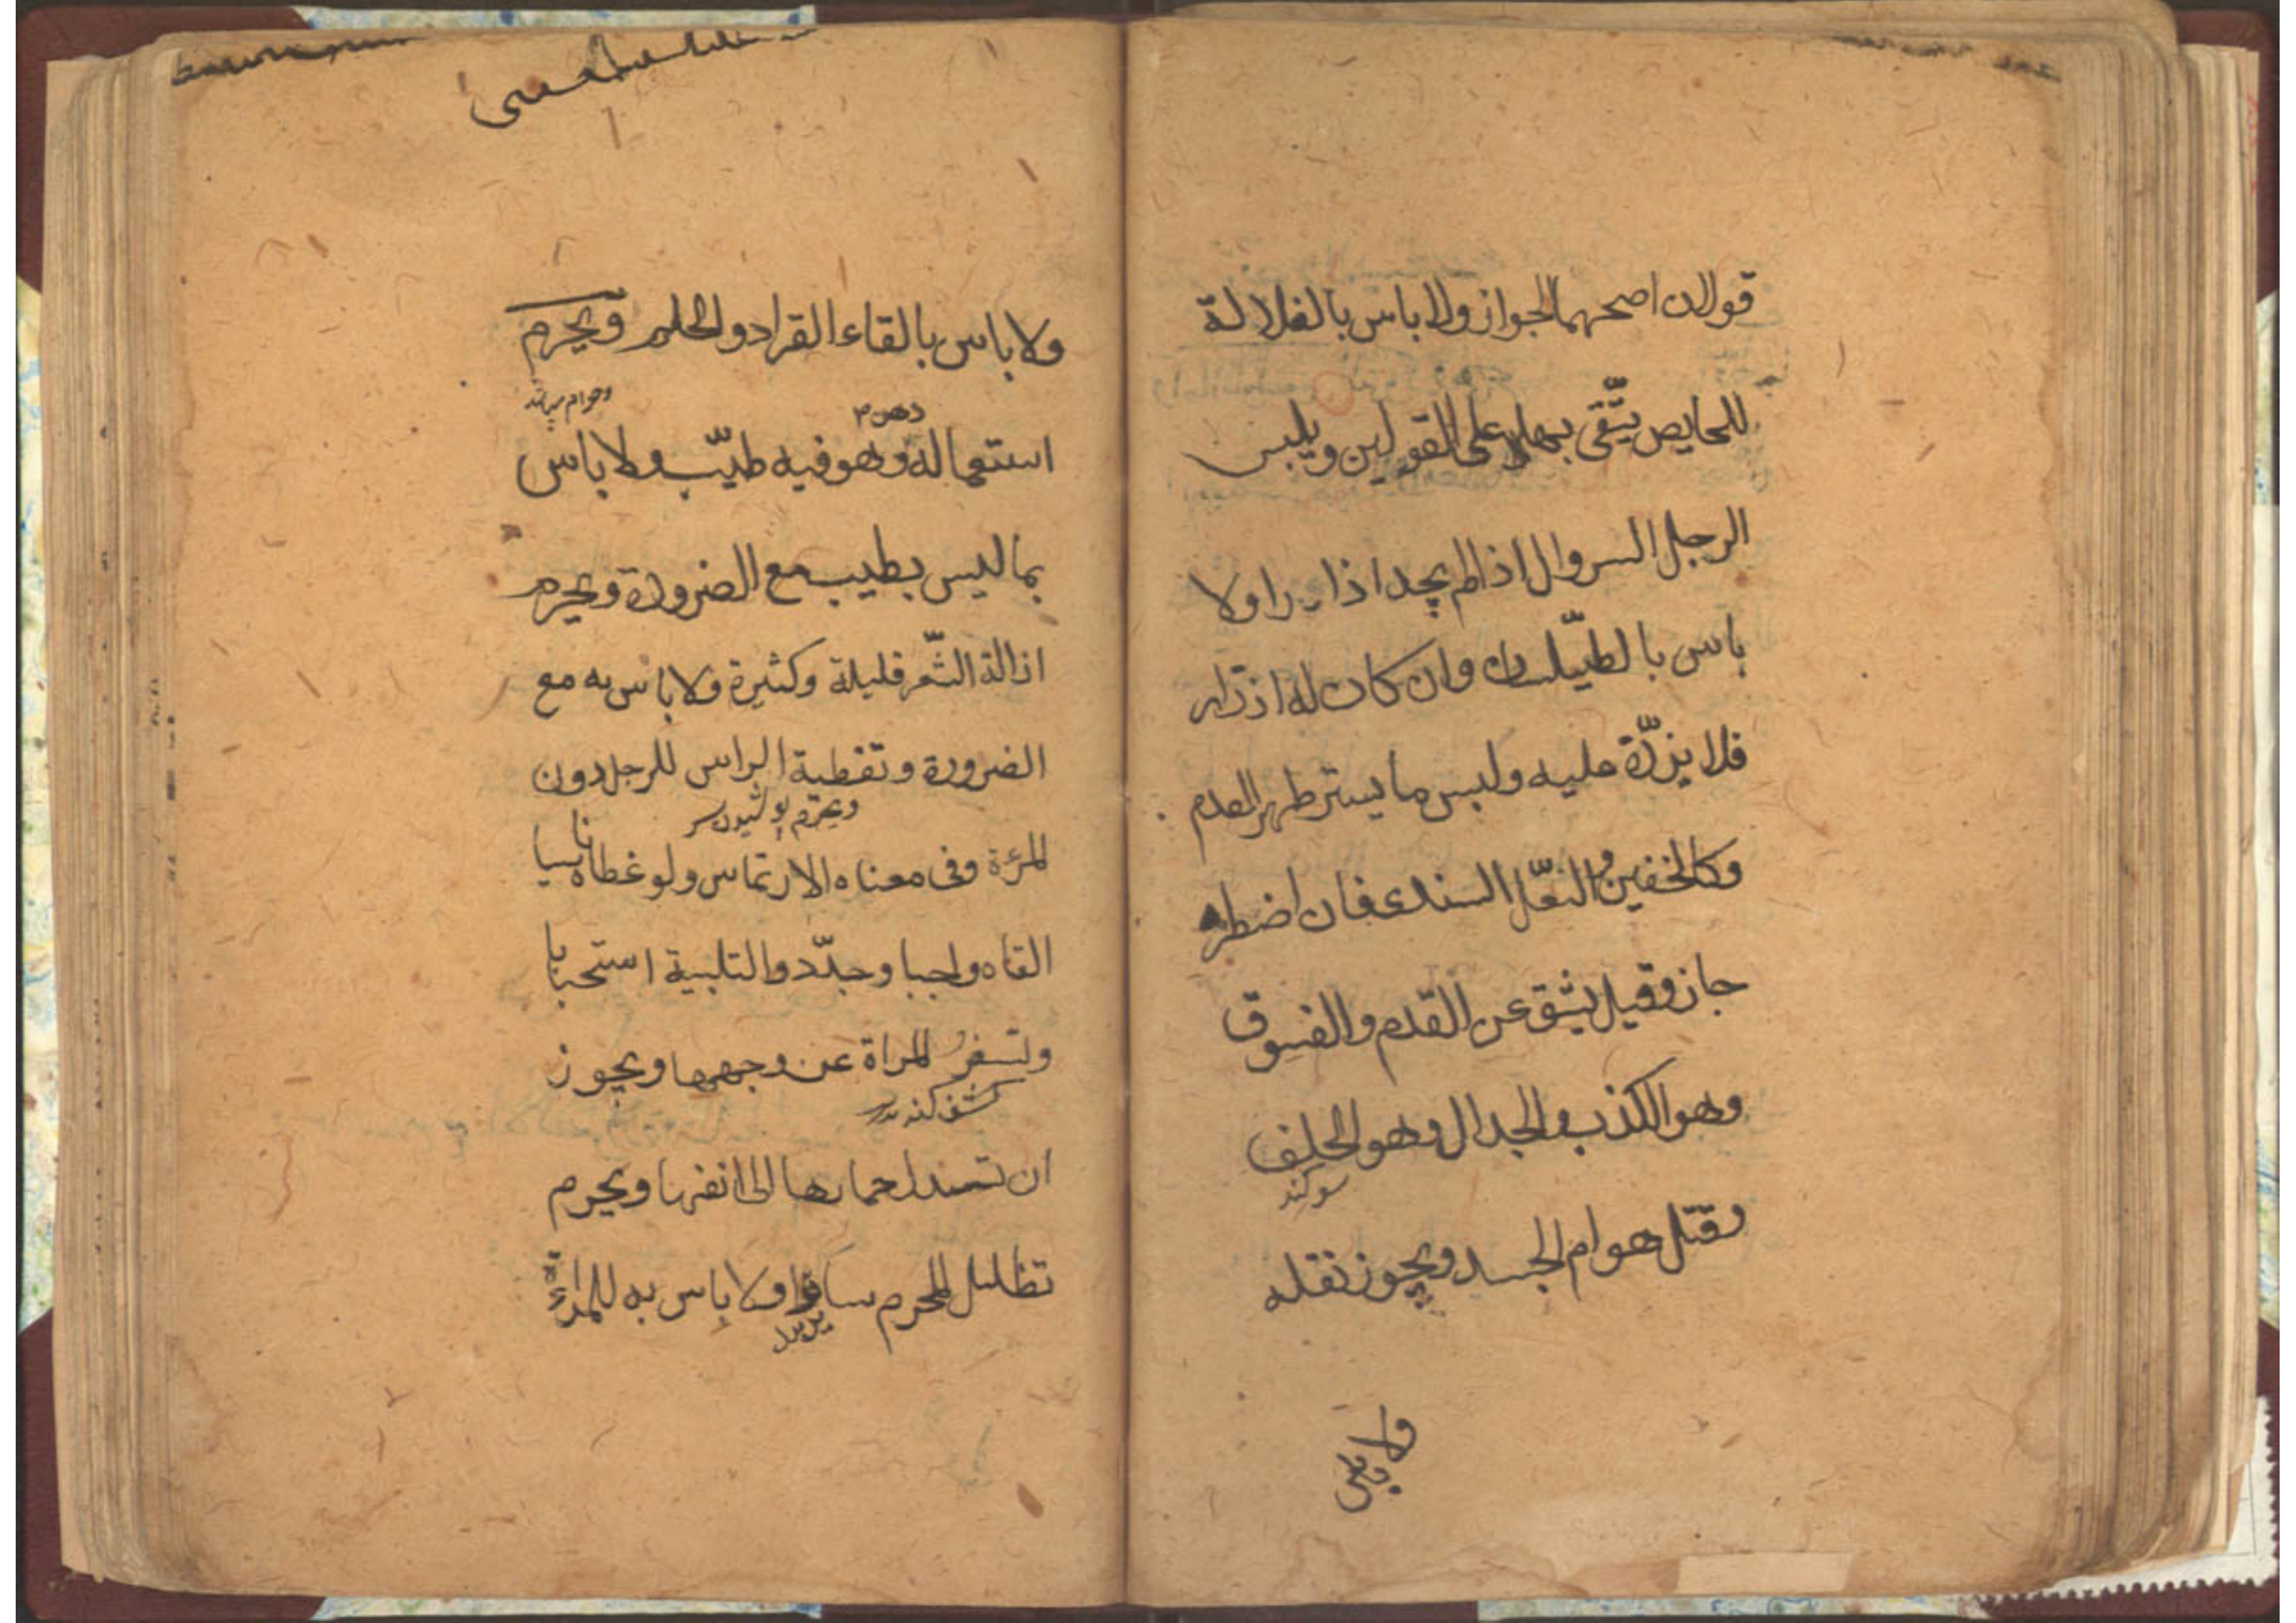 قولان اصحهما الجواز ولا باس بالغلالة
للحايض يتّقى بها على القولين ويلبس
الرجل السروال اذا لم يجد اذارا ولا
باس بالطيّلسان وان كان له اذرار
فلا يزرّه عليه ولبس ما يستر ظهر القدم
وكالخفين والنعّل السندى فان اضطر
جاز وقيل يشق عن القدم والفسوق
وهو الكذب والجدال وهو الحلف
سوكند
وقتل هوام الجسد ويجوز نقله
ولا باس
ولا باس بالقاء القراد والحلم ويحرم
وحرام
دهن
استعماله وهو فيه طيّب ولا باس
بما ليس بطيب مع الضرورة ويحرم
ازالة الشّعر قليلة وكثيرة ولا باس به مع
الضرورة وتغطية الراس للرجل دون
ويحرم پوشیدن سر
المرءة وفى معناه الارتماس ولو غطاه ناسيا
القاه واجبا وجدّد والتلبية استحبابا
وتسفرُ المراة عن وجهها ويجوز
كشف كند
ان تسدل خمارها الى انفها ويحرم
تظليل المحرم سائرا ولا باس به للمراة